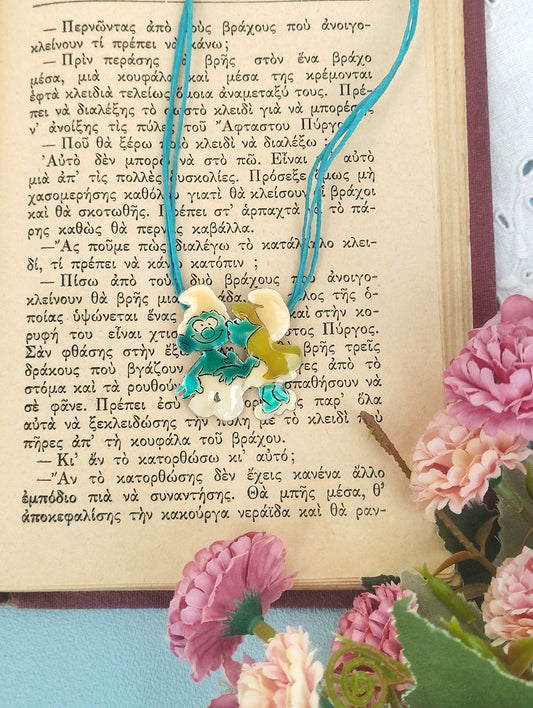 — Περνῶντας ἀπὸ τοὺς βράχους ποὺ ἀνοιγο-
κλείνουν τί πρέπει νὰ κάνω;
— Πρὶν περάσης θὰ βρῆς στὸν ἕνα βράχο
μέσα, μιὰ κουφάλα καὶ μέσα της κρέμονται
ἑφτὰ κλειδιὰ τελείως ὅμοια ἀναμεταξύ τους. Πρέ-
πει νὰ διαλέξης τὸ σωστὸ κλειδὶ γιὰ νὰ μπορέσης
ν' ἀνοίξης τὶς πύλες τοῦ "Αφταστου Πύργου
— Ποῦ θὰ ξέρω ποιὸ κλειδὶ νὰ διαλέξω ;
'Αὐτὸ δὲν μπορῶ νὰ στὸ πῶ. Εἶναι αὐτὸ
μιὰ ἀπ' τὶς πολλὲς δυσκολίες. Πρόσεξε ὅμως μὴ
χασομερήσης καθόλου γιατὶ θὰ κλείσουν οἱ βράχοι
καὶ θὰ σκοτωθῆς. Πρέπει στ' ἁρπαχτὰ τὸ πά-
ρης καθὼς θὰ περνᾶς καβάλλα.
—"Ας ποῦμε πὼς διαλέγω τὸ κατάλληλο κλει-
δί, τί πρέπει νὰ κάνω κατόπιν ;
— Πίσω ἀπὸ τοὺς δυὸ βράχους ποὺ ἀνοιγο-
κλείνουν θὰ βρῆς μιὰ τῆς ὁ-
ποίας ὑψώνεται ἕνας καὶ στὴν κο-
ρυφή του εἶναι Πύργος.
Σὰν φθάσης στὴν βρῆς τρεῖς
δράκους ποὺ βγάζουν ἀπὸ τὸ
στόμα καὶ τὰ ρουθού σπαθήσουν νὰ
σὲ φᾶνε. Πρέπει ἐσὺ παρ' ὅλα
αὐτὰ νὰ ξεκλειδώσης τὴν πύλη μὲ τὸ κλειδὶ ποὺ
πῆρες ἀπ' τὴ κουφάλα τοῦ βράχου.
— Κι' ἂν τὸ κατορθώσω κι' αὐτό;
—"Αν τὸ κατορθώσης δὲν ἔχεις κανένα ἄλλο
ἐμπόδιο πιὰ νὰ συναντήσης. Θὰ μπῆς μέσα, θ'
ἀποκεφαλίσης τὴν κακούργα νεράϊδα καὶ θὰ ραν-